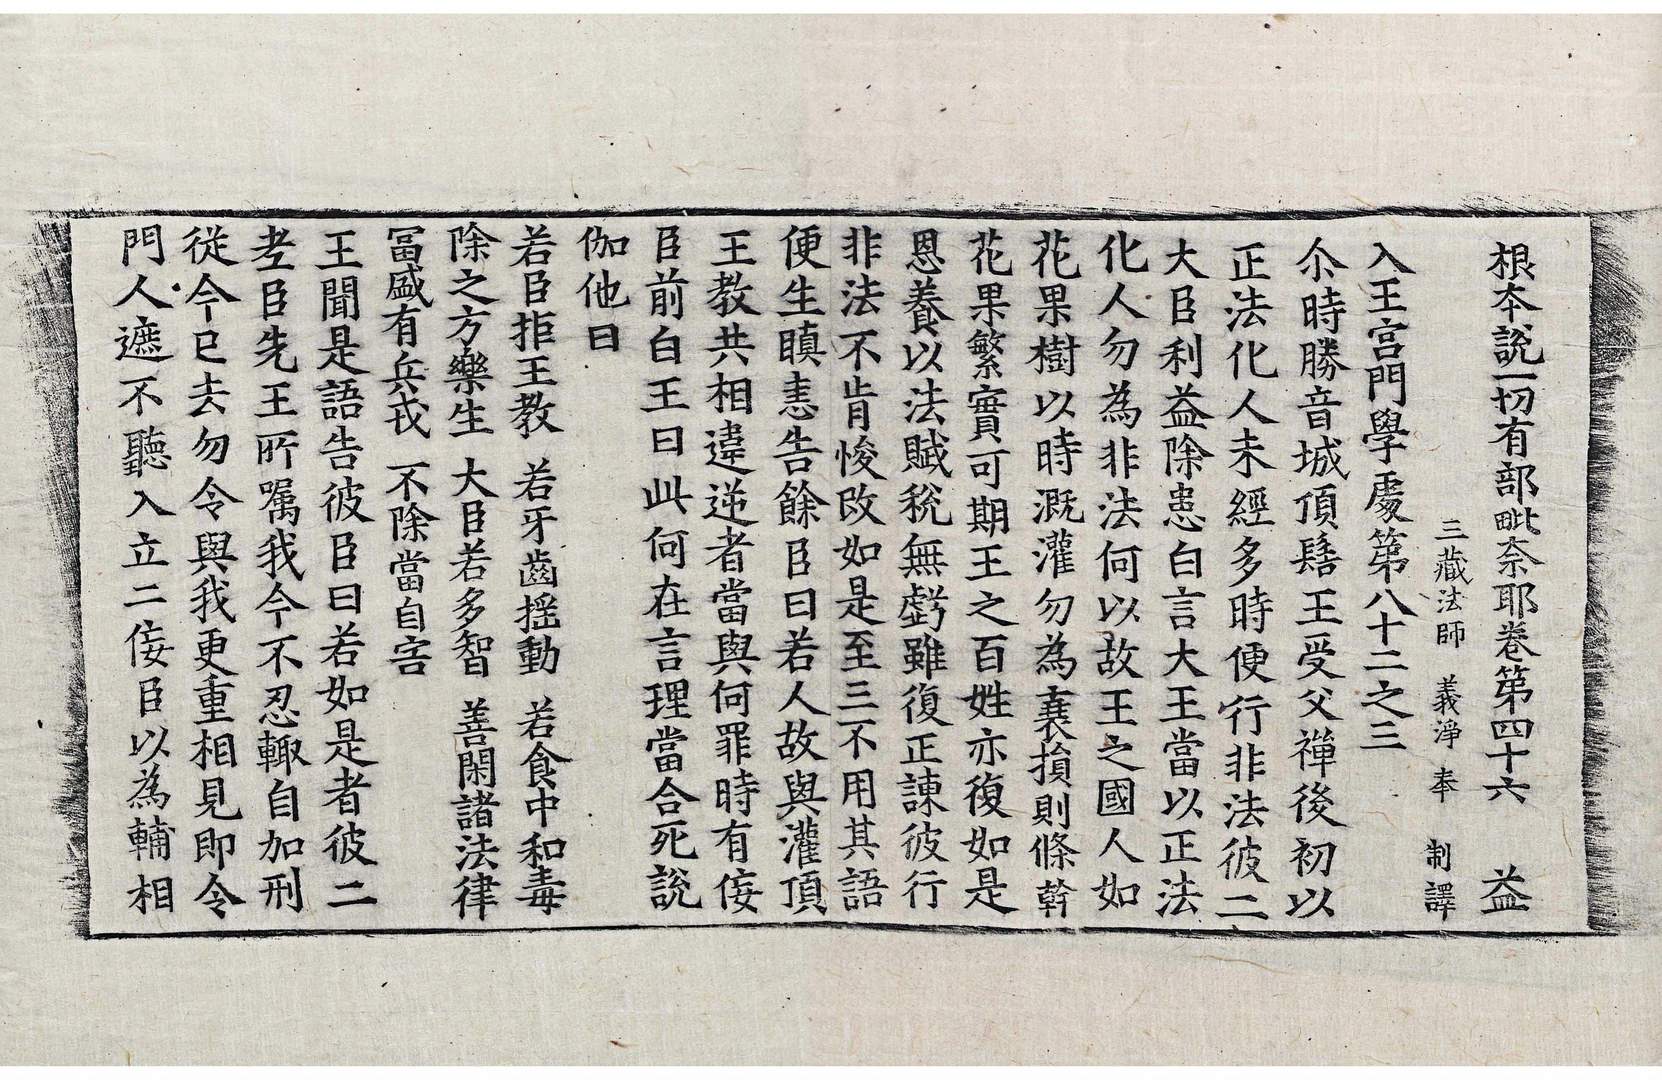 根本說一切有部毗奈耶卷第四十六 益
三藏法師 義淨 奉 制譯
入王宮門學處第八十二之三
尒時勝音城頂髻王受父禪後初以
正法化人未經多時便行非法彼二
大臣利益除患白言大王當以正法
化人勿為非法何以故王之國人如
花果樹以時溉灌勿為衰損則條幹
花果繁實可期王之百姓亦復如是
恩養以法賦稅無虧雖復正諫彼行
非法不肯悛改如是至三不用其語
便生瞋恚告餘臣曰若人故與灌頂
王教共相違逆者當與何罪時有侫
臣前白王曰此何在言理當合死說
伽他曰
若臣拒王教 若牙齒揺動 若食中和毒
除之方樂生 大臣若多智 善閑諸法律
冨盛有兵戎 不除當自害
王聞是語告彼臣曰若如是者彼二
老臣先王所嘱我今不忍輙自加刑
從今已去勿令與我更重相見即令
門人遮不聽入立二侫臣以為輔相